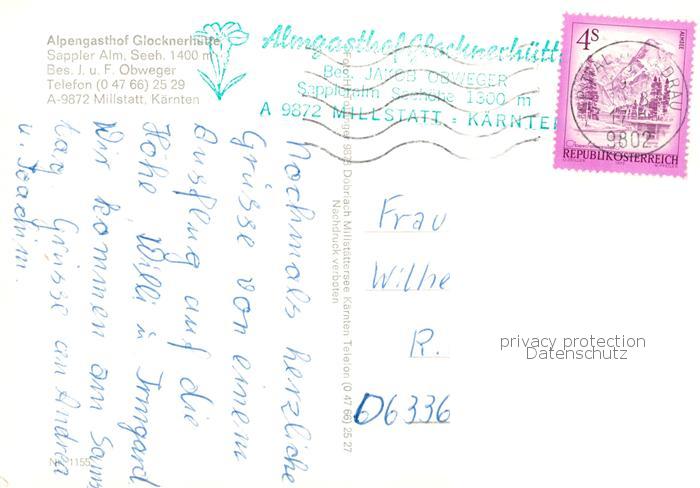 Alpengasthof Glocknerhütte
Sappler Alm, Seeh. 1400 m
Bes. J. u. F. Obweger
Telefon (0 47 66) 25 29
A-9872 Millstatt, Kärnten
Almgasthof Glocknerhütt
Bes. JAKOB OBWEGER
Sappleralm Seehöhe 1300 m
A 9872 MILLSTATT - KÄRNTEN
4S
ALMSEE
REPUBLIK ÖSTERREICH
DRAU
9802
nochmals herzliche
Grüsse von einem
Ausflug auf die
Höhe Willi u. Irmgard
Wir kommen am Sams
tag Grüsse an Andrea
u. Joachim.
9873 Döbriach Millstättersee Kärnten Telefon (0 47 66) 25 27
Nachdruck verboten
Frau
Wilhe
R.
D6336
privacy protection
Datenschutz
1155